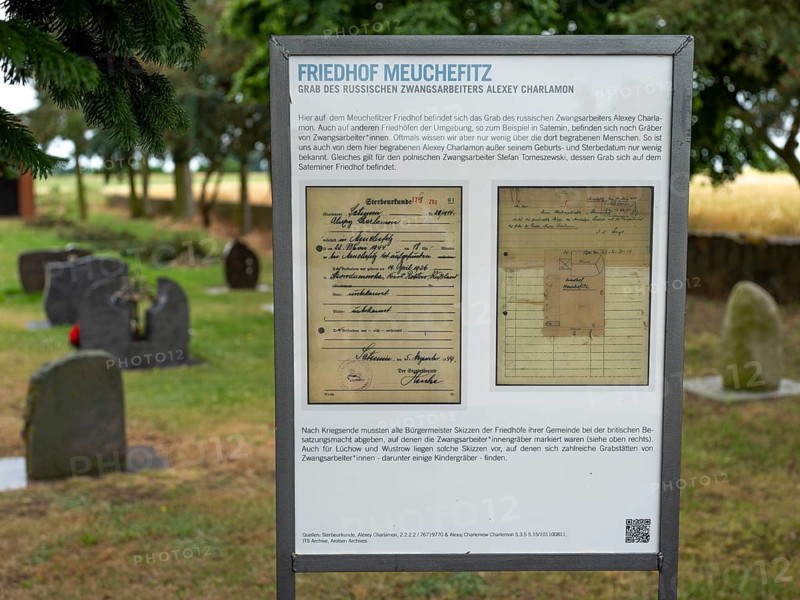 FRIEDHOF MEUCHEFITZ
GRAB DES RUSSISCHEN ZWANGSARBEITERS ALEXEY CHARLAMON
Hier auf dem Meuchefitzer Friedhof befindet sich das Grab des russischen Zwangsarbeiters Alexey Charla-
mon. Auch auf anderen Friedhöfen der Umgebung, so zum Beispiel in Satemin, befinden sich noch Gräber
von Zwangsarbeiter*innen. Oftmals wissen wir aber nur wenig über die dort begrabenen Menschen. So ist
uns auch von dem hier begrabenen Alexey Charlamon außer seinem Geburts- und Sterbedatum nur wenig
bekannt. Gleiches gilt für den polnischen Zwangsarbeiter Stefan Tomeszewski, dessen Grab sich auf dem
Sateminer Friedhof befindet.
Sterbeurkunde
Satemin
Alexey Charlamon
in Meuchefitz
unbekannt
unbekannt
Satemin
Der Standesbeamte
Friedhof
Meuchefitz
Nach Kriegsende mussten alle Bürgermeister Skizzen der Friedhöfe ihrer Gemeinde bei der britischen Be-
satzungsmacht abgeben, auf denen die Zwangsarbeiter*innengräber markiert waren (siehe oben rechts).
Auch für Lüchow und Wustrow liegen solche Skizzen vor, auf denen sich zahlreiche Grabstätten von
Zwangsarbeiter*innen - darunter einige Kindergräber - finden.
Quellen: Sterbeurkunde, Alexey Charlamon, 2.2.2.2 / 76719770 & Alexej Charlamow Charlemon 5.3.5 5.15/101100811.
ITS Archive, Arolsen Archives
PHOTO12